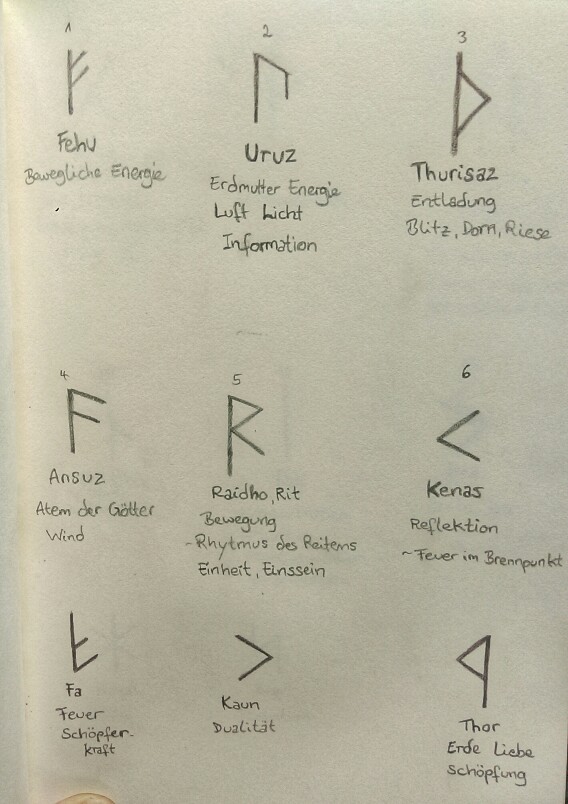 1
Fehu
Bewegliche Energie
2
Uruz
Erdmutter Energie
Luft Licht
Information
3
Thurisaz
Entladung
Blitz, Dorn, Riese
4
Ansuz
Atem der Götter
Wind
5
Raidho, Rit
Bewegung
~Rhytmus des Reitens
Einheit, Einssein
6
Kenas
Reflektion
~Feuer im Brennpunkt
Fa
Feuer
Schöpfer-
kraft
Kaun
Dualität
Thor
Erde Liebe
Schöpfung